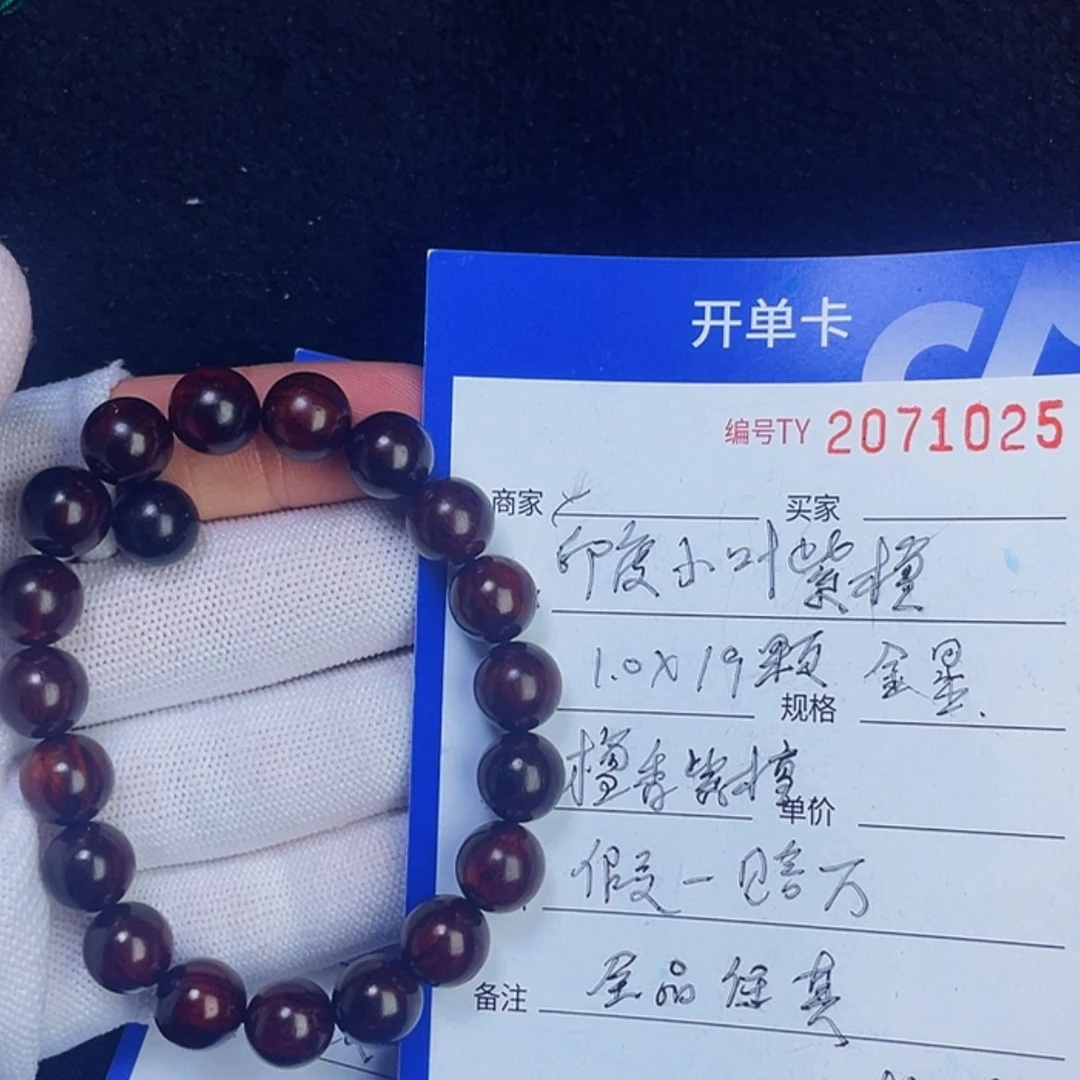 开单卡
编号TY 2071025
商家 买家
印度小叶紫檀
1.0X19颗 金星
规格
檀香紫檀
单价
假一赔万
备注 全品保真